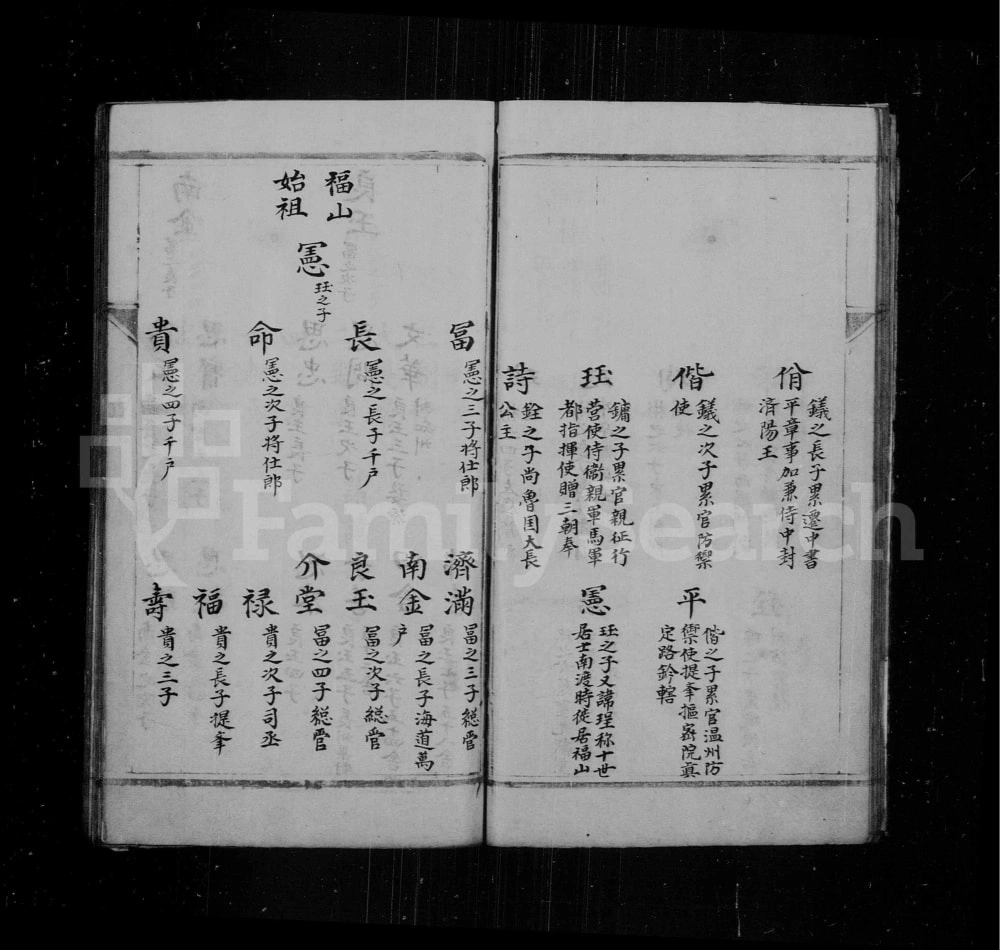 佾
鏶之長子累遷中書
平章事加兼侍中封
済陽王
偕
鏶之次子累官防禦
使
平
偕之子累官温州防
禦使提奉摳宻院真
定路鈐轄
珏
鏞之子累官親征行
营使侍衞親軍馬軍
都指揮使贈三朝奉
憲
珏之子又諱珵称十世
居士南渡時徙居福山
詩
銓之子尚魯国大長
公主
福山
始祖
憲
珏之子
冨
憲之三子将仕郎
濟滿
冨之三子縂管
南金
冨之長子海道萬
户
長
憲之長子千户
良玉
冨之次子縂管
介堂
冨之四子縂管
命
憲之次子将仕郎
禄
貴之次子司丞
福
貴之長子提奉
貴
憲之四子千户
壽
貴之三子
FamilySearch